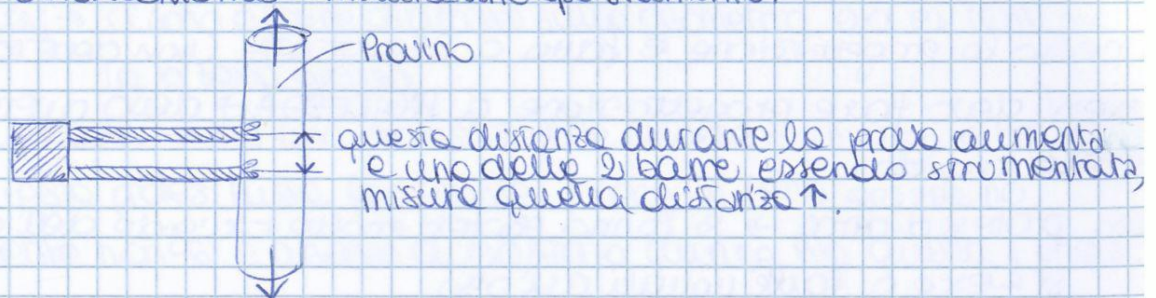 Provino
questa distanza durante la prova aumenta
e una delle 2 barre essendo strumentata,
misura quella distanza ↑.